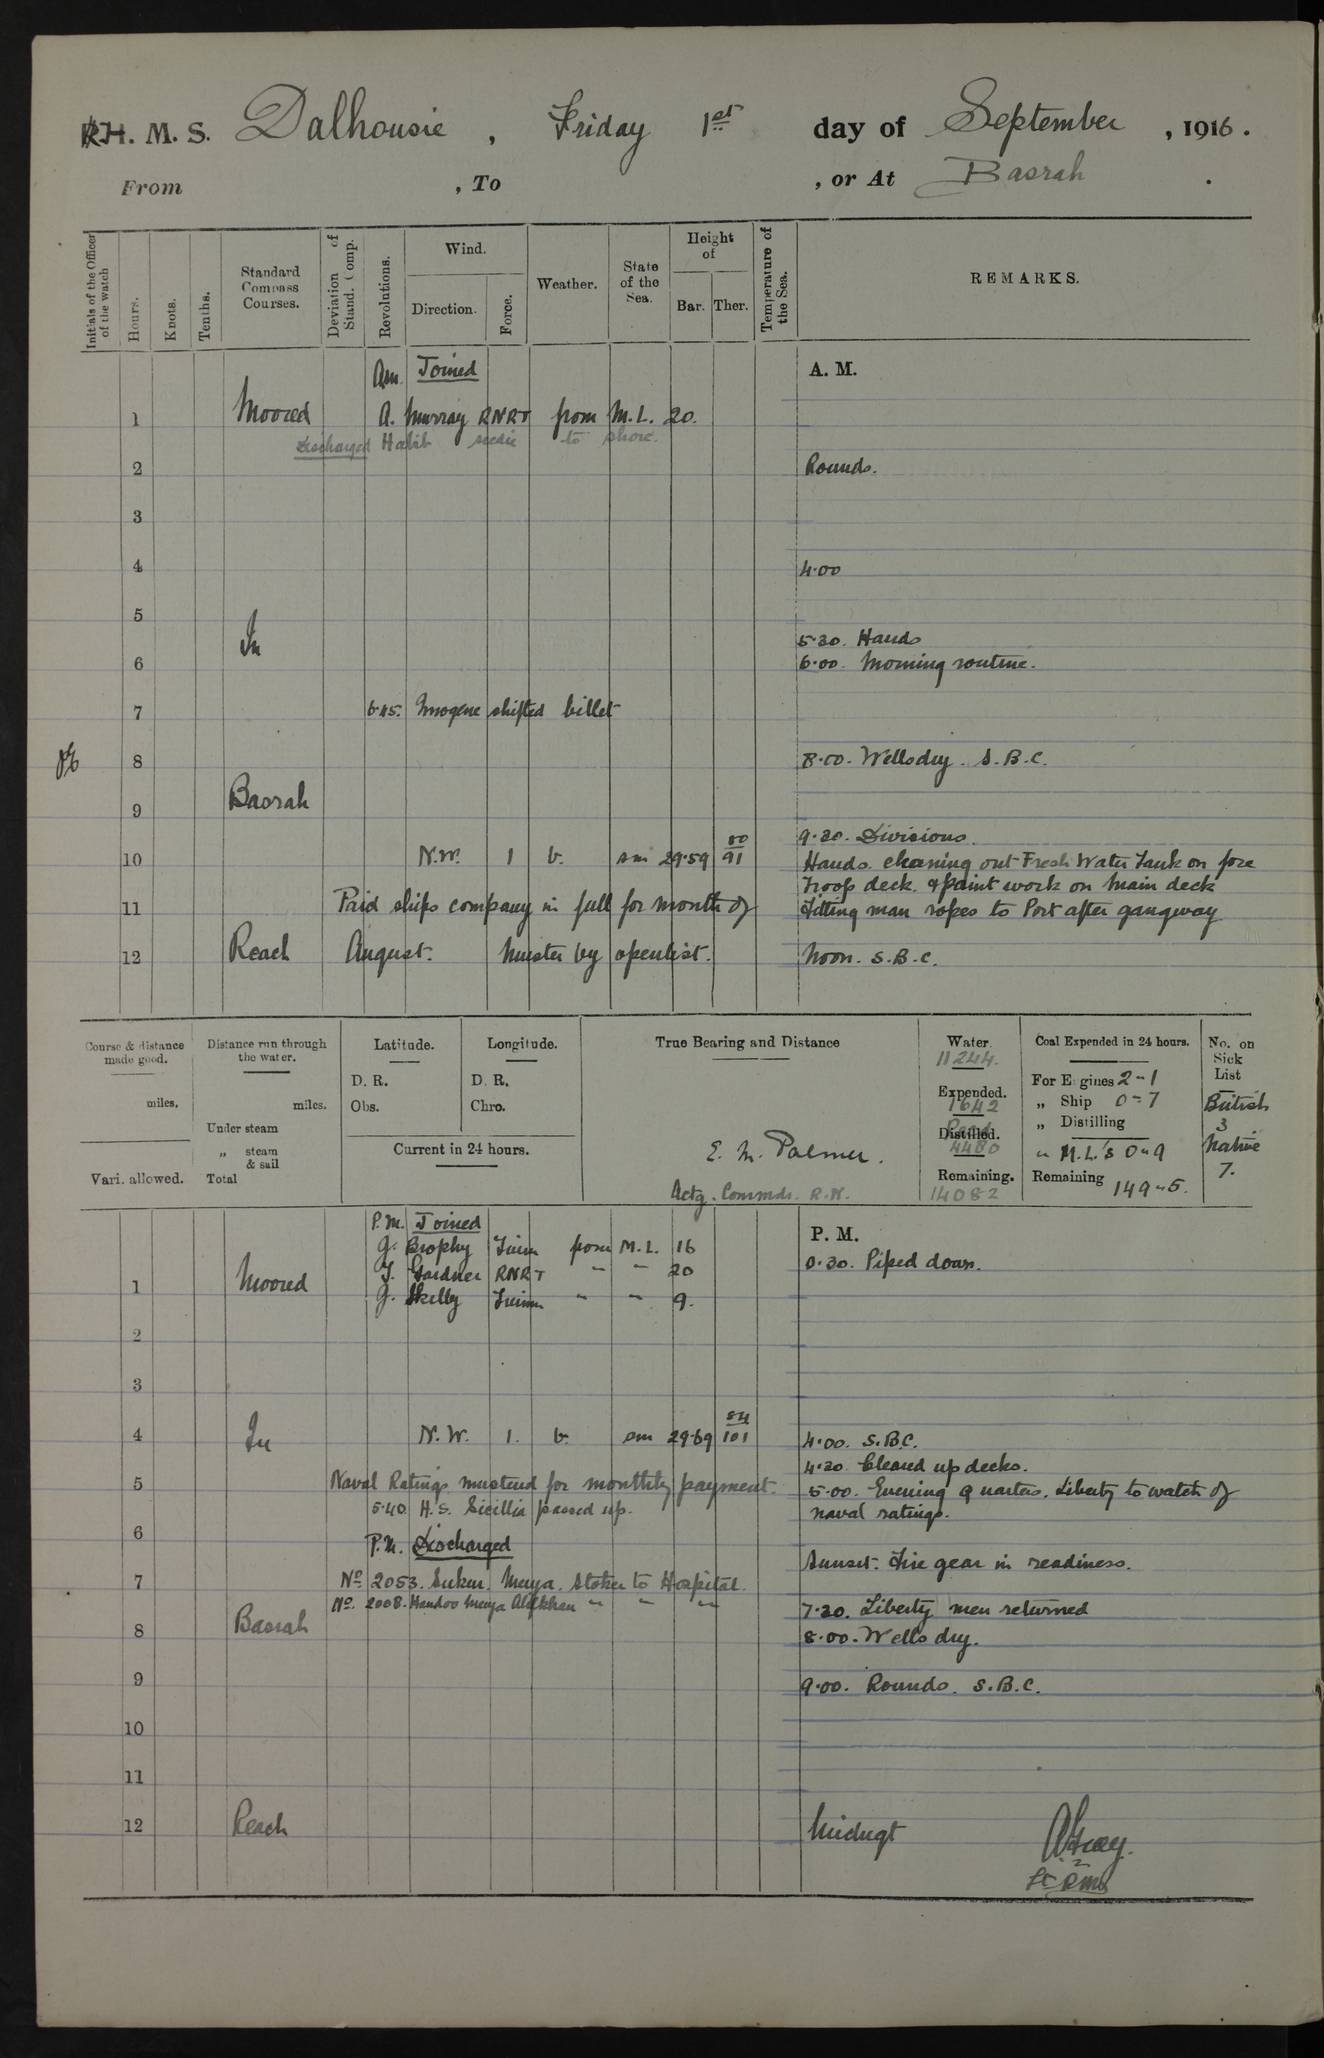 R.H. M. S. Dalhousie , Friday 1st day of September , 1916 .
From , To , or At Basrah .
Initials of the Officer of the watch
Hours.
Knots.
Tenths.
Standard Compass Courses.
Deviation of Stand. Comp.
Revolutions.
Wind.
Direction.
Force.
Weather.
State of the Sea.
Height of
Bar. Ther.
Temperature of the Sea.
REMARKS.
Am. Joined A. M.
1 Moored A. Murray RNRT from M.L. 20.
Discharged Habib seedie to shore.
2 Rounds.
3
4 4.00
5
In 5.30. Hands
6 6.00. Morning routine.
7 6.45. Imogene shifted billet
8 8.00. Wells dry. S.B.C.
9 Basrah
9.30. Divisions.
10 N.W. 1 b. sm 29.59 80/91 Hands cleaning out Fresh Water Tank on fore
Troop deck. & paint work on Main deck
11 Paid ships company in full for month of Fitting man ropes to Port after gangway
12 Reach August. Muster by openlist. Noon. S.B.C.
Course & distance made good.
miles.
Vari. allowed.
Distance run through the water.
miles.
Under steam
„ steam & sail
Total
Latitude.
D. R.
Obs.
Longitude.
D. R.
Chro.
Current in 24 hours.
True Bearing and Distance
E. M. Palmer.
Actg. Commdr. R.N.
Water.
11244.
Expended.
1642
Distilled.
Recd
4480
Remaining.
14082
Coal Expended in 24 hours.
For Engines 2-1
„ Ship 0-7
„ Distilling
„ M.L.'s 0-9
Remaining 149-5.
No. on Sick List
British
3
Native
7.
P.M. Joined P. M.
G. Brophy from M.L. 16 0.30. Piped down.
1 Moored T. Gardner RNRT " " 20
G. Skelly " " 9.
2
3
4 In N.W. 1. b. sm 29.69 84/101 4.00. S.B.C.
4.30. Cleared up decks.
5 Naval Ratings mustered for monthly payment. 5.00. Evening Quarters. Liberty to watch of
5.40. H.S. Sicillia passed up. naval ratings.
6 P.M. Discharged
Sunset. Fire gear in readiness.
7 No. 2053. Sukur. Meya. Stoker to Hospital.
No. 2008. Handoo Meya Alefkhan " " " 7.30. Liberty men returned
8 Basrah 8.00. Wells dry.
9 9.00. Rounds. S.B.C.
10
11
12 Reach Midngt